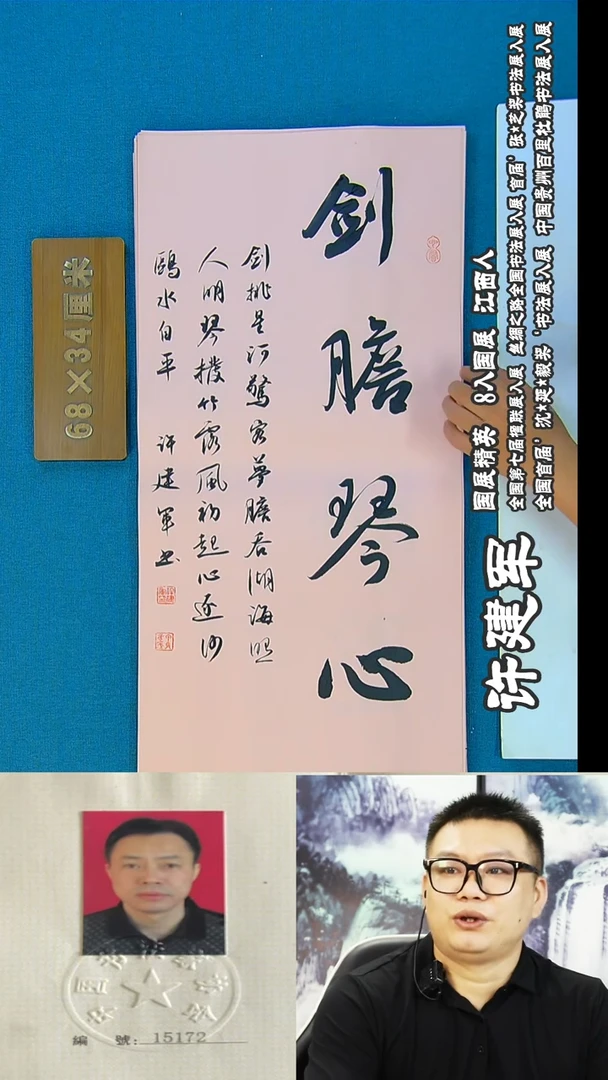 剑膽琴心
剑挑星河驚客夢膽吞湖海照
人明琴撥竹露風初起心逐沙
鷗水自平 许建軍书
68×34厘米
许建军
国展精英 8入国展 江西人
全国第七届楹联展入展 丝绸之路全国书法展入展 首届’张★芝奖书法展入展
全国首届’沈★延★毅奖‘书法展入展 中国贵州百里杜鹃书法展入展
編 號: 15172